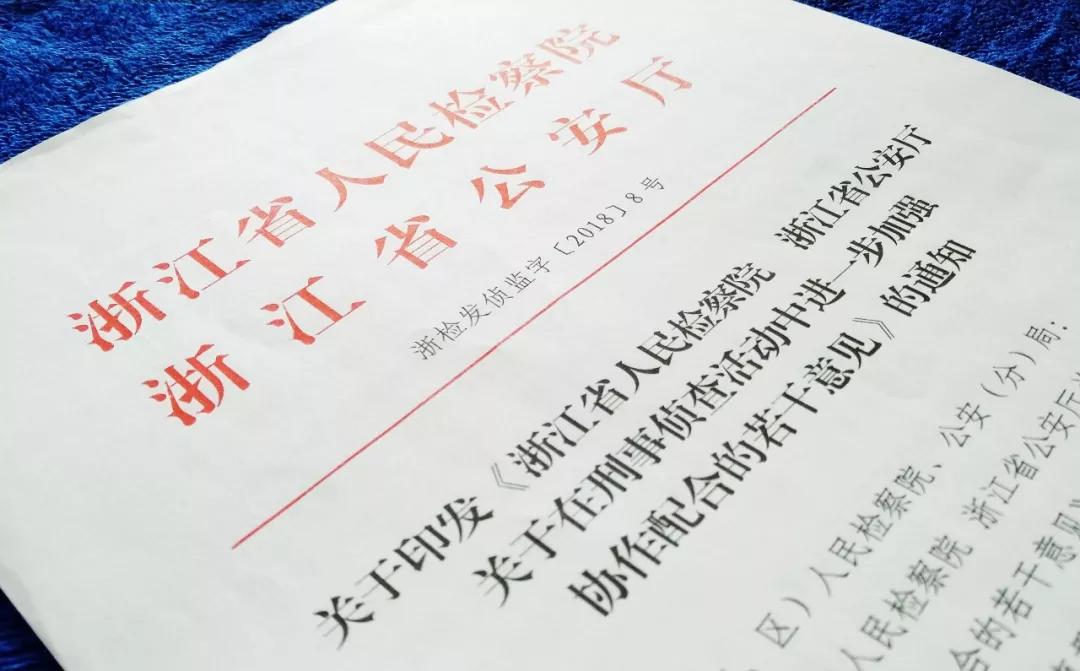 浙江省人民检察院
浙江省公安厅
浙检发侦监字〔2018〕8号
关于印发《浙江省人民检察院 浙江省公安厅
关于在刑事侦查活动中进一步加强
协作配合的若干意见》的通知
区）人民检察院、公安（分）局：
人民检察院 浙江省公安厅
合的若干意见》